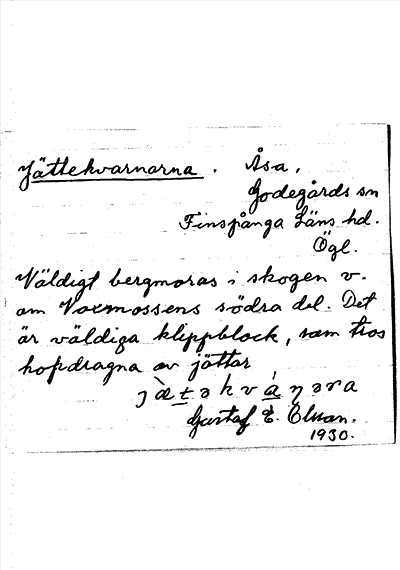 Jättekvarnarna. Åsa,
Godegårds sn
Finspånga Läns hd.
Ögl.
Väldigt bergmoras i skogen v.
om Voxmossens södra del. Det
är väldiga klippblock, som tros
hopdragna av jättar
Gustaf E. Olsson.
1930.